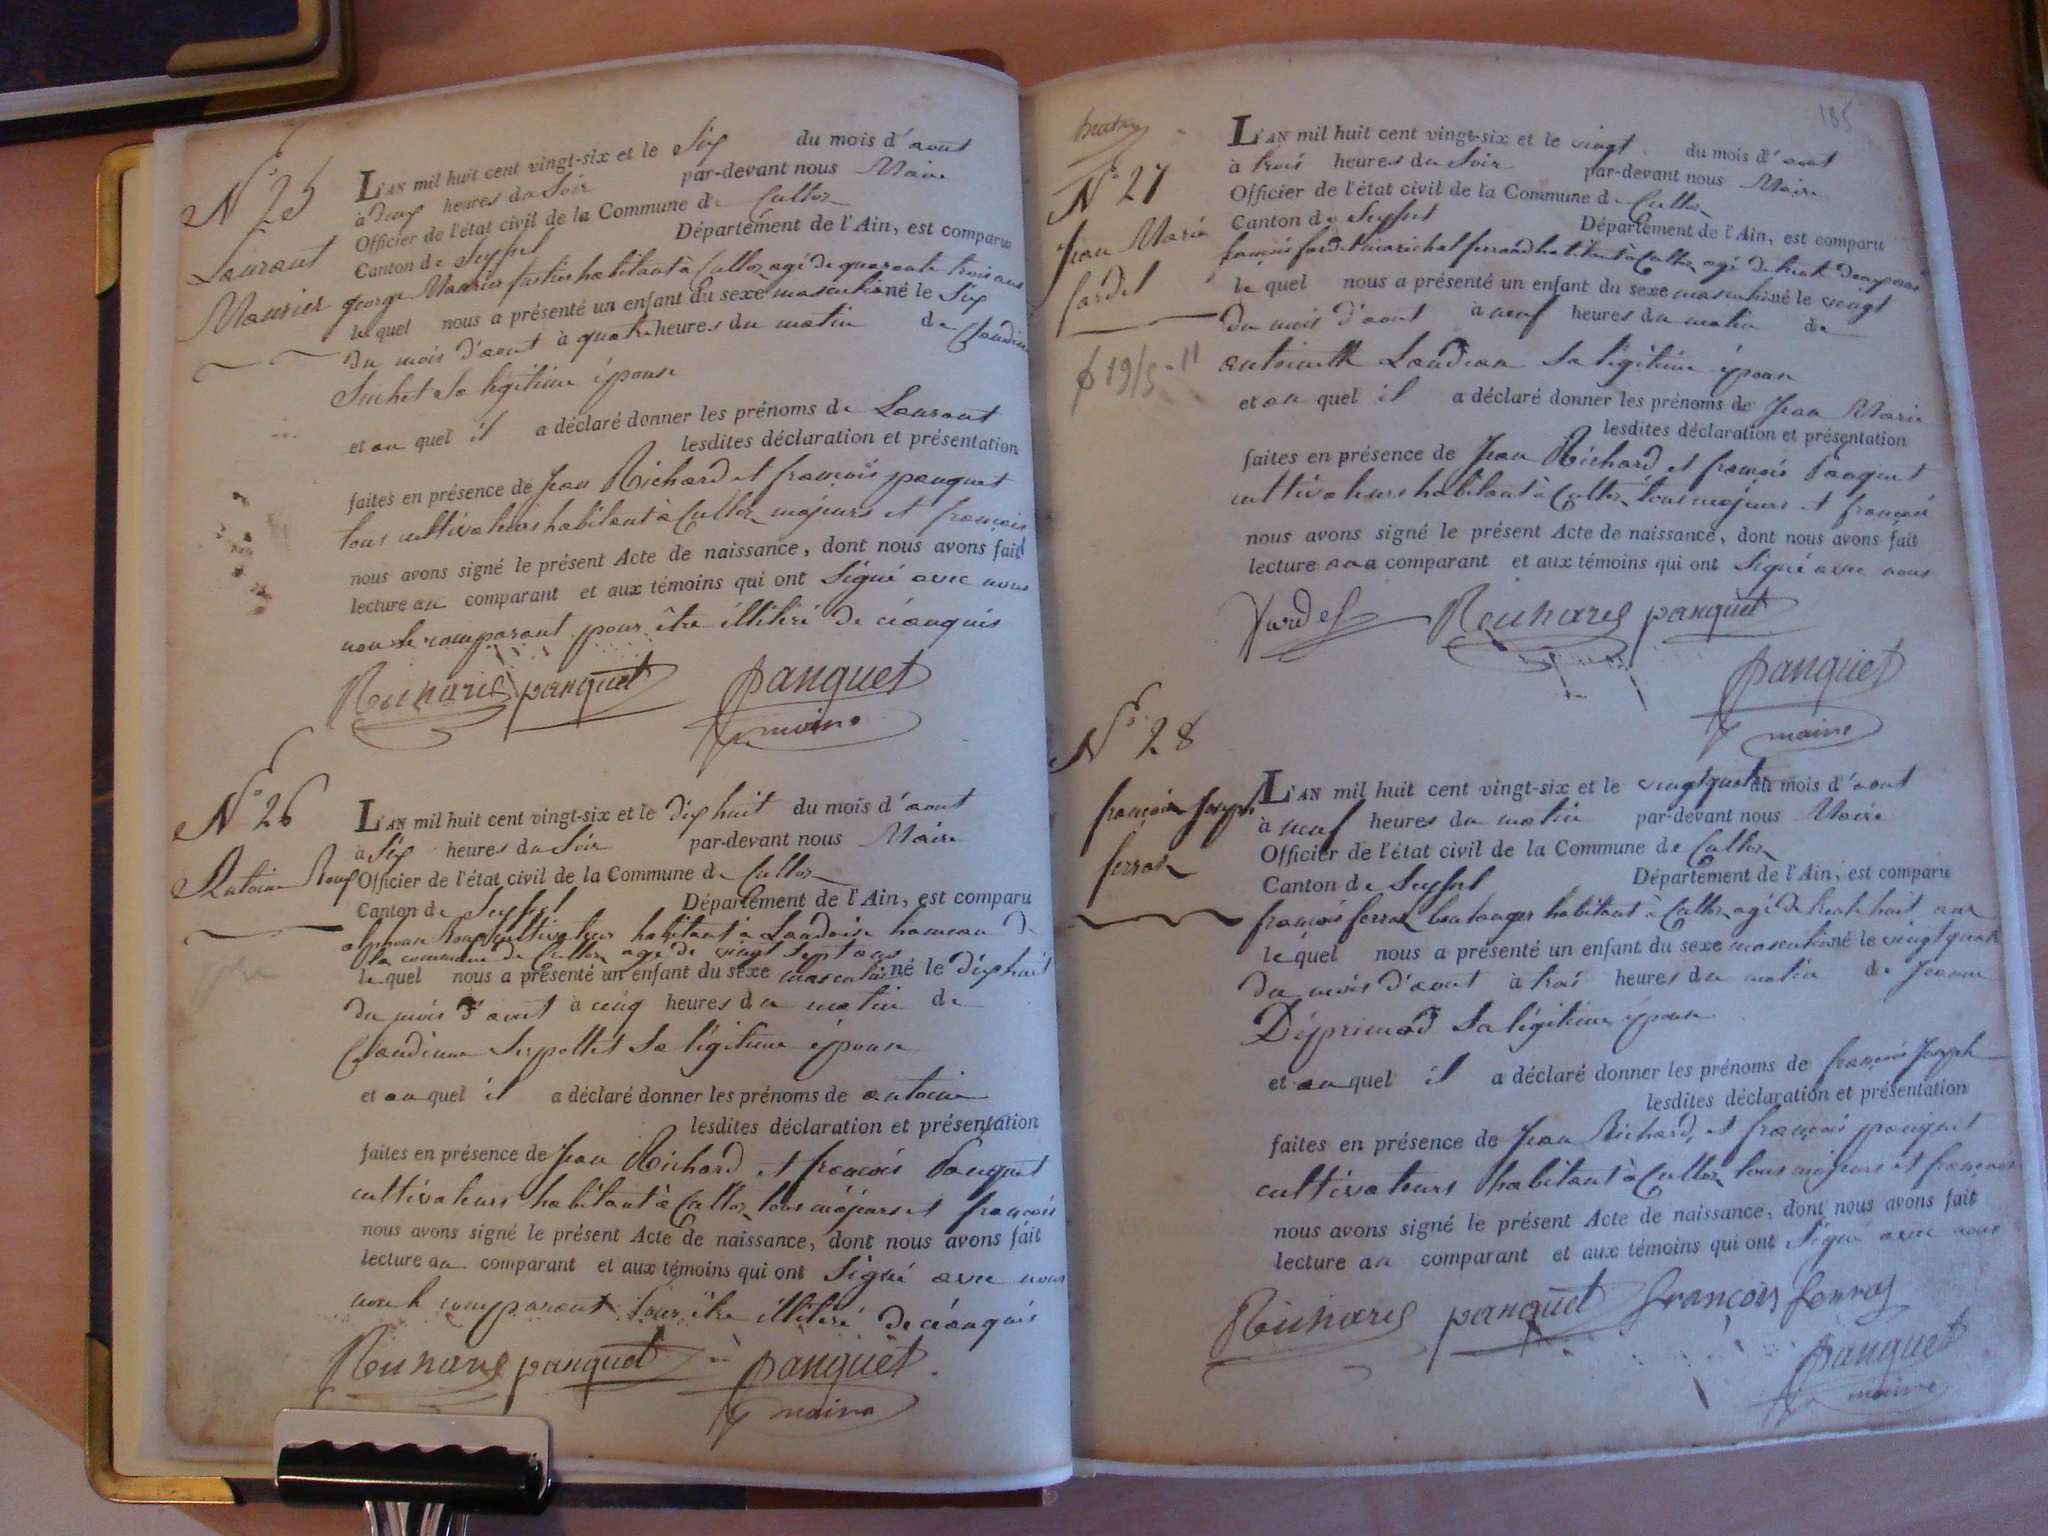 N° 25
Laurent
Maurier
L'AN mil huit cent vingt-six et le Six du mois d'aout
à deux heures du Soir par-devant nous Maire
Officier de l'état civil de la Commune de Culloz
Canton de Seyssel Département de l'Ain, est comparu
george Maurier habitant à Culloz agé de quarante trois ans
le quel nous a présenté un enfant du sexe masculin né le Six
du mois d'aout à quatre heures du matin de Claudine
Suchet Sa légitime épouse
et au quel il a déclaré donner les prénoms de Laurant
lesdites déclaration et présentation
faites en présence de Jean Richard et françois panquet
tous cultivateurs habitant à Culloz majeurs et français
nous avons signé le présent Acte de naissance, dont nous avons fait
lecture au comparant et aux témoins qui ont Signé avec nous
non le comparant pour être illitéré de ce requis
Richard panquet panquet
maire
N° 26
Antoine Roux
L'AN mil huit cent vingt-six et le dix huit du mois d'aout
à Six heures du Soir par-devant nous Maire
Officier de l'état civil de la Commune de Culloz
Canton de Seyssel Département de l'Ain, est comparu
alphonse Roux cultivateur habitant à Landaise hameau de
la commune de Culloz agé de vingt sept ans
le quel nous a présenté un enfant du sexe masculin né le dix huit
du mois d'aout à cinq heures du matin de
Claudine Serpollet Sa légitime épouse
et au quel il a déclaré donner les prénoms de antoine
lesdites déclaration et présentation
faites en présence de Jean Richard et françois Panquet
cultivateurs habitant à Culloz tous majeurs et français
nous avons signé le présent Acte de naissance, dont nous avons fait
lecture au comparant et aux témoins qui ont Signé avec nous
non le comparant Pour être illitéré de ce requis
Richard panquet panquet
maire
185
N° 27
Jean Marie
fardel
19/5-11
L'AN mil huit cent vingt-six et le vingt du mois d'aout
à trois heures du Soir par-devant nous Maire
Officier de l'état civil de la Commune de Culloz
Canton de Seyssel Département de l'Ain, est comparu
françois fardel marichal ferrand habitant à Culloz agé de trente deux ans
le quel nous a présenté un enfant du sexe masculin né le vingt
du mois d'aout à neuf heures du matin de
antoinette Landeau Sa légitime épouse
et au quel il a déclaré donner les prénoms de Jean Marie
lesdites déclaration et présentation
faites en présence de Jean Richard et françois Panquet
cultivateurs habitant à Culloz tous majeurs et français
nous avons signé le présent Acte de naissance, dont nous avons fait
lecture au comparant et aux témoins qui ont Signé avec nous
fardel Richard panquet
panquet
maire
N° 28
françois Joseph
ferraz
L'AN mil huit cent vingt-six et le vingt quatre du mois d'aout
à neuf heures du matin par-devant nous Maire
Officier de l'état civil de la Commune de Culloz
Canton de Seyssel Département de l'Ain, est comparu
françois ferraz boulanger habitant à Culloz agé de trente huit ans
le quel nous a présenté un enfant du sexe masculin né le vingt quatre
du mois d'aout à trois heures du matin de Jeanne
Déprimod Sa légitime épouse
et au quel il a déclaré donner les prénoms de françois Joseph
lesdites déclaration et présentation
faites en présence de Jean Richard et françois panquet
cultivateurs habitant à Culloz tous majeurs et français
nous avons signé le présent Acte de naissance, dont nous avons fait
lecture au comparant et aux témoins qui ont Signé avec nous
Richard panquet françois ferraz
panquet
maire